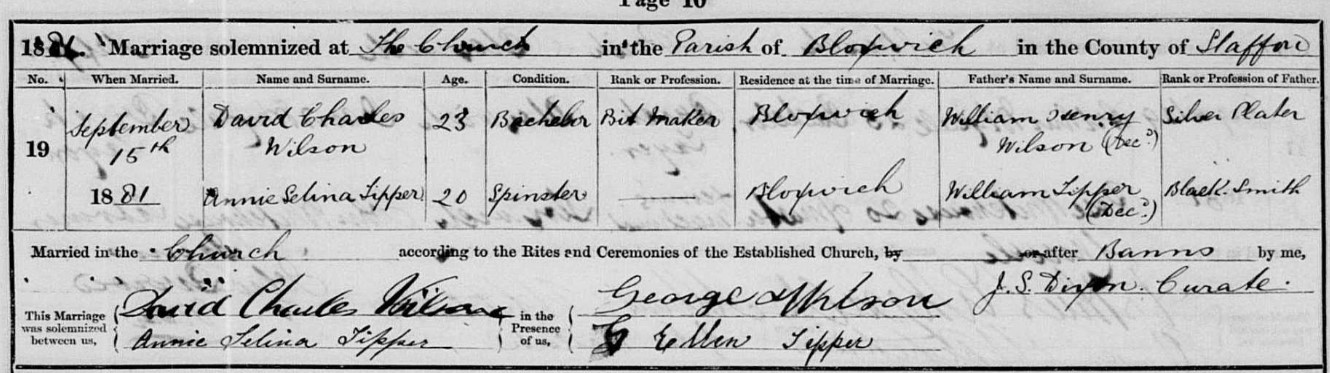 Page 10
1881. Marriage solemnized at The Church in the Parish of Bloxwich in the County of Stafford
No. When Married. Name and Surname. Age. Condition. Rank or Profession. Residence at the time of Marriage. Father's Name and Surname. Rank or Profession of Father.
19 September 15th 1881 David Charles Wilson 23 Bachelor Bit Maker Bloxwich William Henry Wilson (Decd.) Silver Plater
Annie Selina Tipper 20 Spinster —— Bloxwich William Tipper (Decd.) Black Smith
Married in the Church according to the Rites and Ceremonies of the Established Church, by or after Banns by me,
J. S. Dixon. Curate.
This Marriage was solemnized between us, David Charles Wilson in the Presence of us, George Wilson
Annie Selina Tipper Ellen Tipper